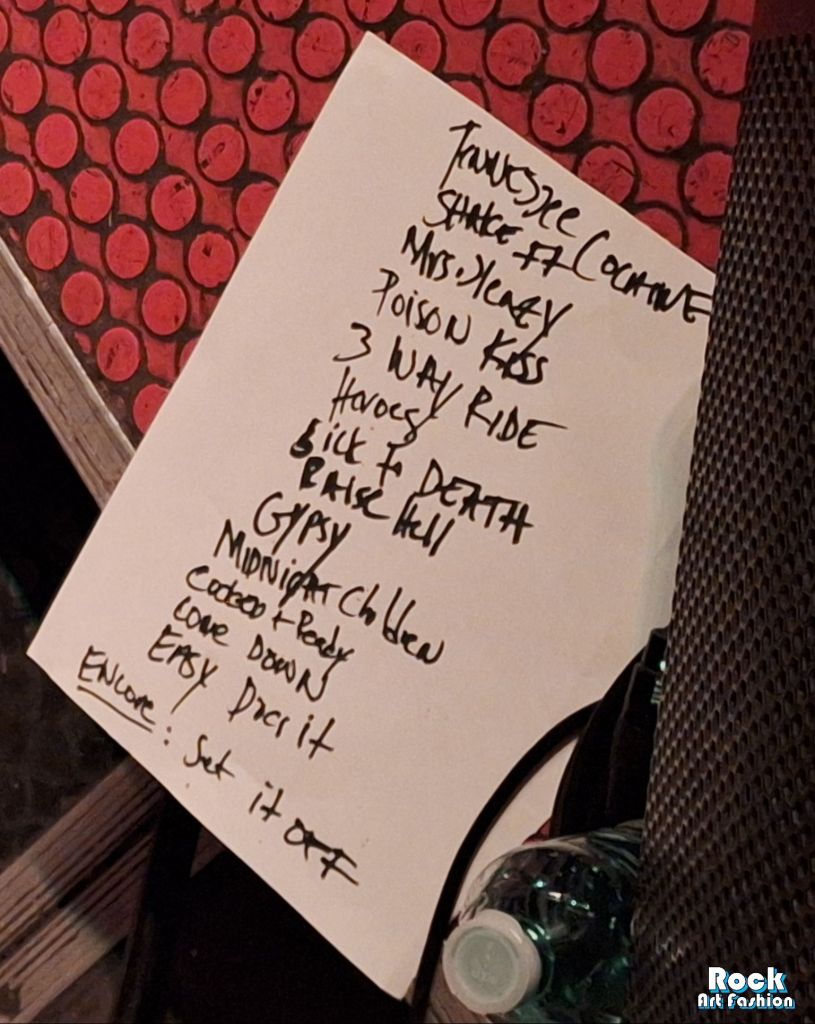 Tennessee COCAINE
SHAKE IT
Mrs. Kenedy
POISON KISS
3 WAY RIDE
Heroes
Sick to DEATH
RAISE Hell
GYPSY
MIDNIGHT Children
Cocked + Ready
COME DOWN
EASY Does it
ENCORE: Set it OFF
Rock
Art Fashion